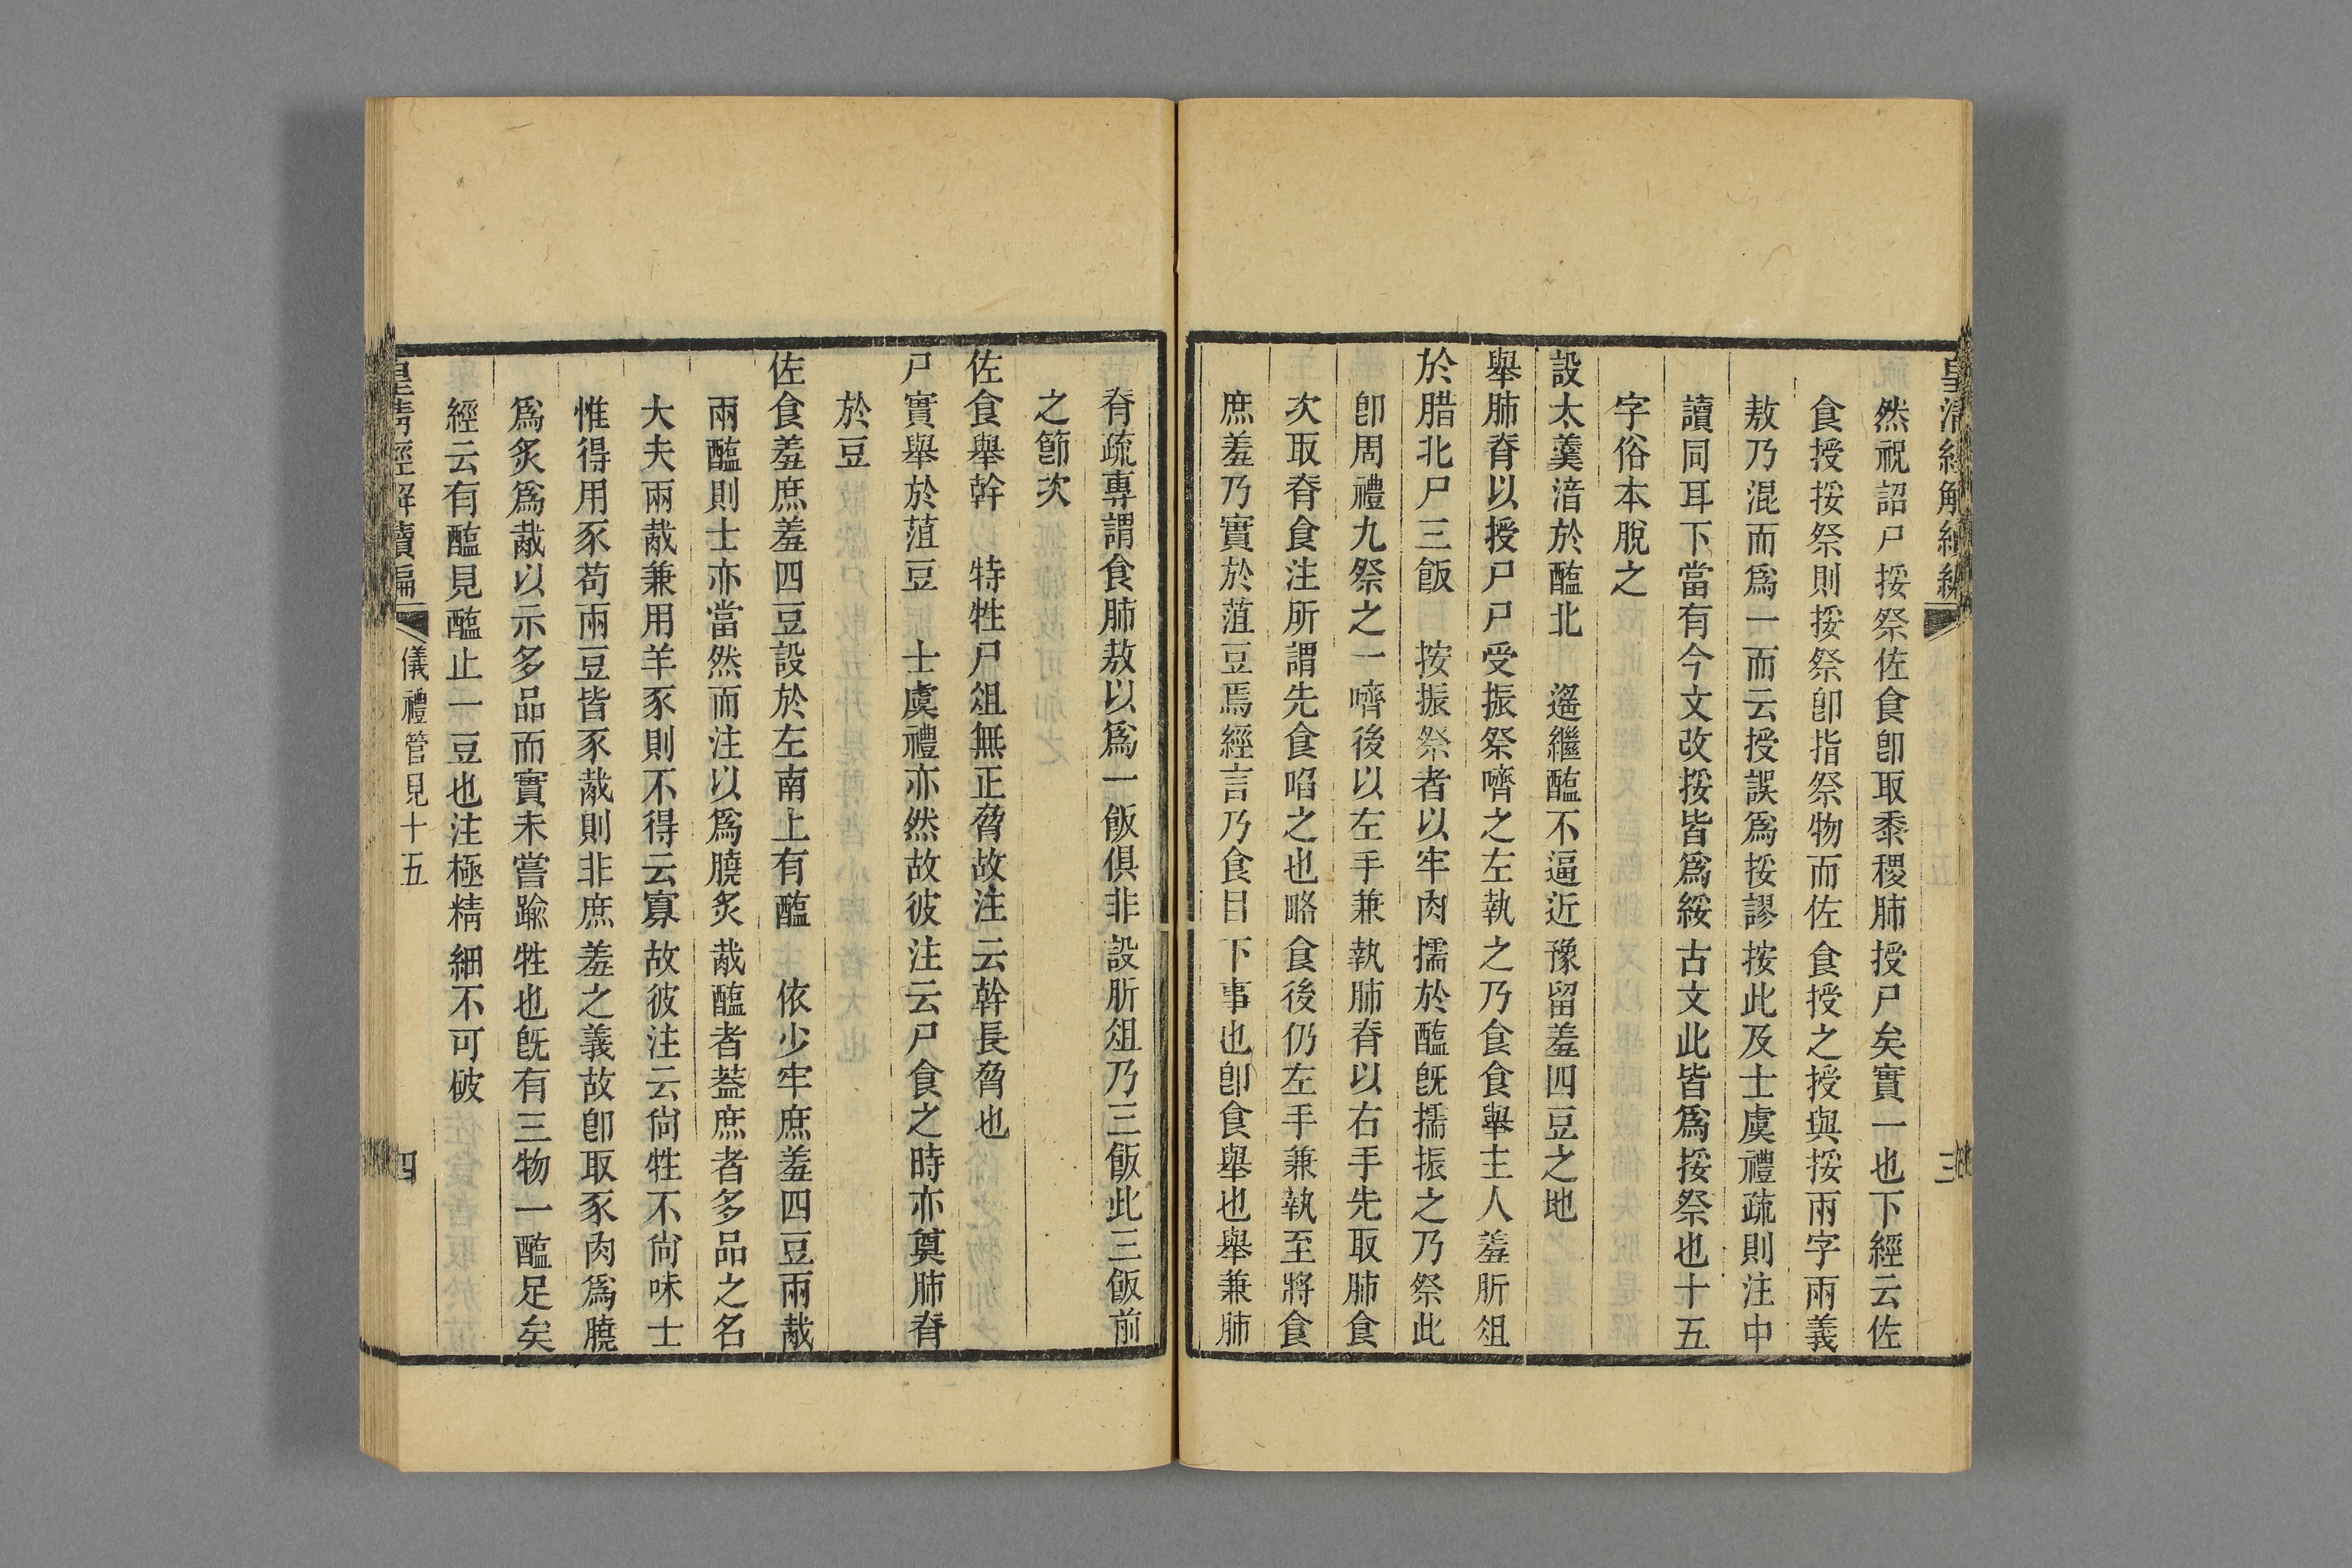 皇清經解續編
三
然祝詔尸挼祭佐食卽取黍稷肺授尸矣實一也下經云佐
食授挼祭則挼祭卽指祭物而佐食授之授與挼兩字兩義
敖乃混而爲一而云授誤爲挼謬按此及士虞禮疏則注中
讀同耳下當有今文改挼皆爲綏古文此皆爲挼祭也十五
字俗本脫之
設太羹湆於醢北　遙繼醢不逼近豫留羞四豆之地
舉肺脊以授尸尸受振祭嚌之左執之乃食食舉主人羞肵俎
於腊北尸三飯　按振祭者以牢肉擩於醢旣擩振之乃祭此
卽周禮九祭之一嚌後以左手兼執肺脊以右手先取肺食
次取脊食注所謂先食啗之也略食後仍左手兼執至將食
庶羞乃實於菹豆焉經言乃食目下事也卽食舉也舉兼肺
脊疏專謂食肺敖以爲一飯俱非設肵俎乃三飯此三飯前
之節次
佐食舉幹　特牲尸俎無正脅故注云幹長脅也
尸實舉於菹豆　士虞禮亦然故彼注云尸食之時亦奠肺脊
於豆
佐食羞庶羞四豆設於左南上有醢　依少牢庶羞四豆兩胾
兩醢則士亦當然而注以爲膮炙胾醢者蓋庶者多品之名
大夫兩胾兼用羊豕則不得云寡故彼注云尙牲不尙味士
惟得用豕苟兩豆皆豕胾則非庶羞之義故卽取豕肉爲膮
爲炙爲胾以示多品而實未嘗踰牲也旣有三物一醢足矣
經云有醢見醢止一豆也注極精細不可破
皇清經解續編
儀禮管見十五
四